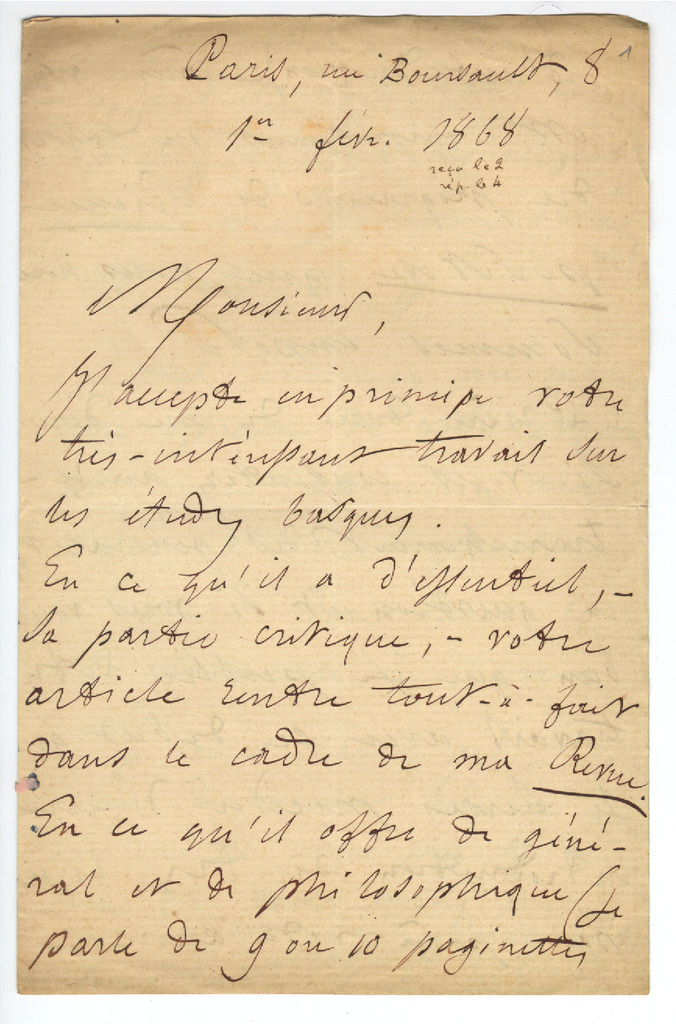 Paris, rue Boursault, 8
1
1er févr. 1868
reçu le 2
rép. le 4
Monsieur,
J'accepte en principe votre
très-intéressant travail sur
les études basques.
En ce qu'il a d'essentiel, –
la partie critique, – votre
article rentre tout-à-fait
dans le cadre de ma Revue.
En ce qu'il offre de géné-
ral et de philosophique (je
parle de 9 ou 10 paginettes